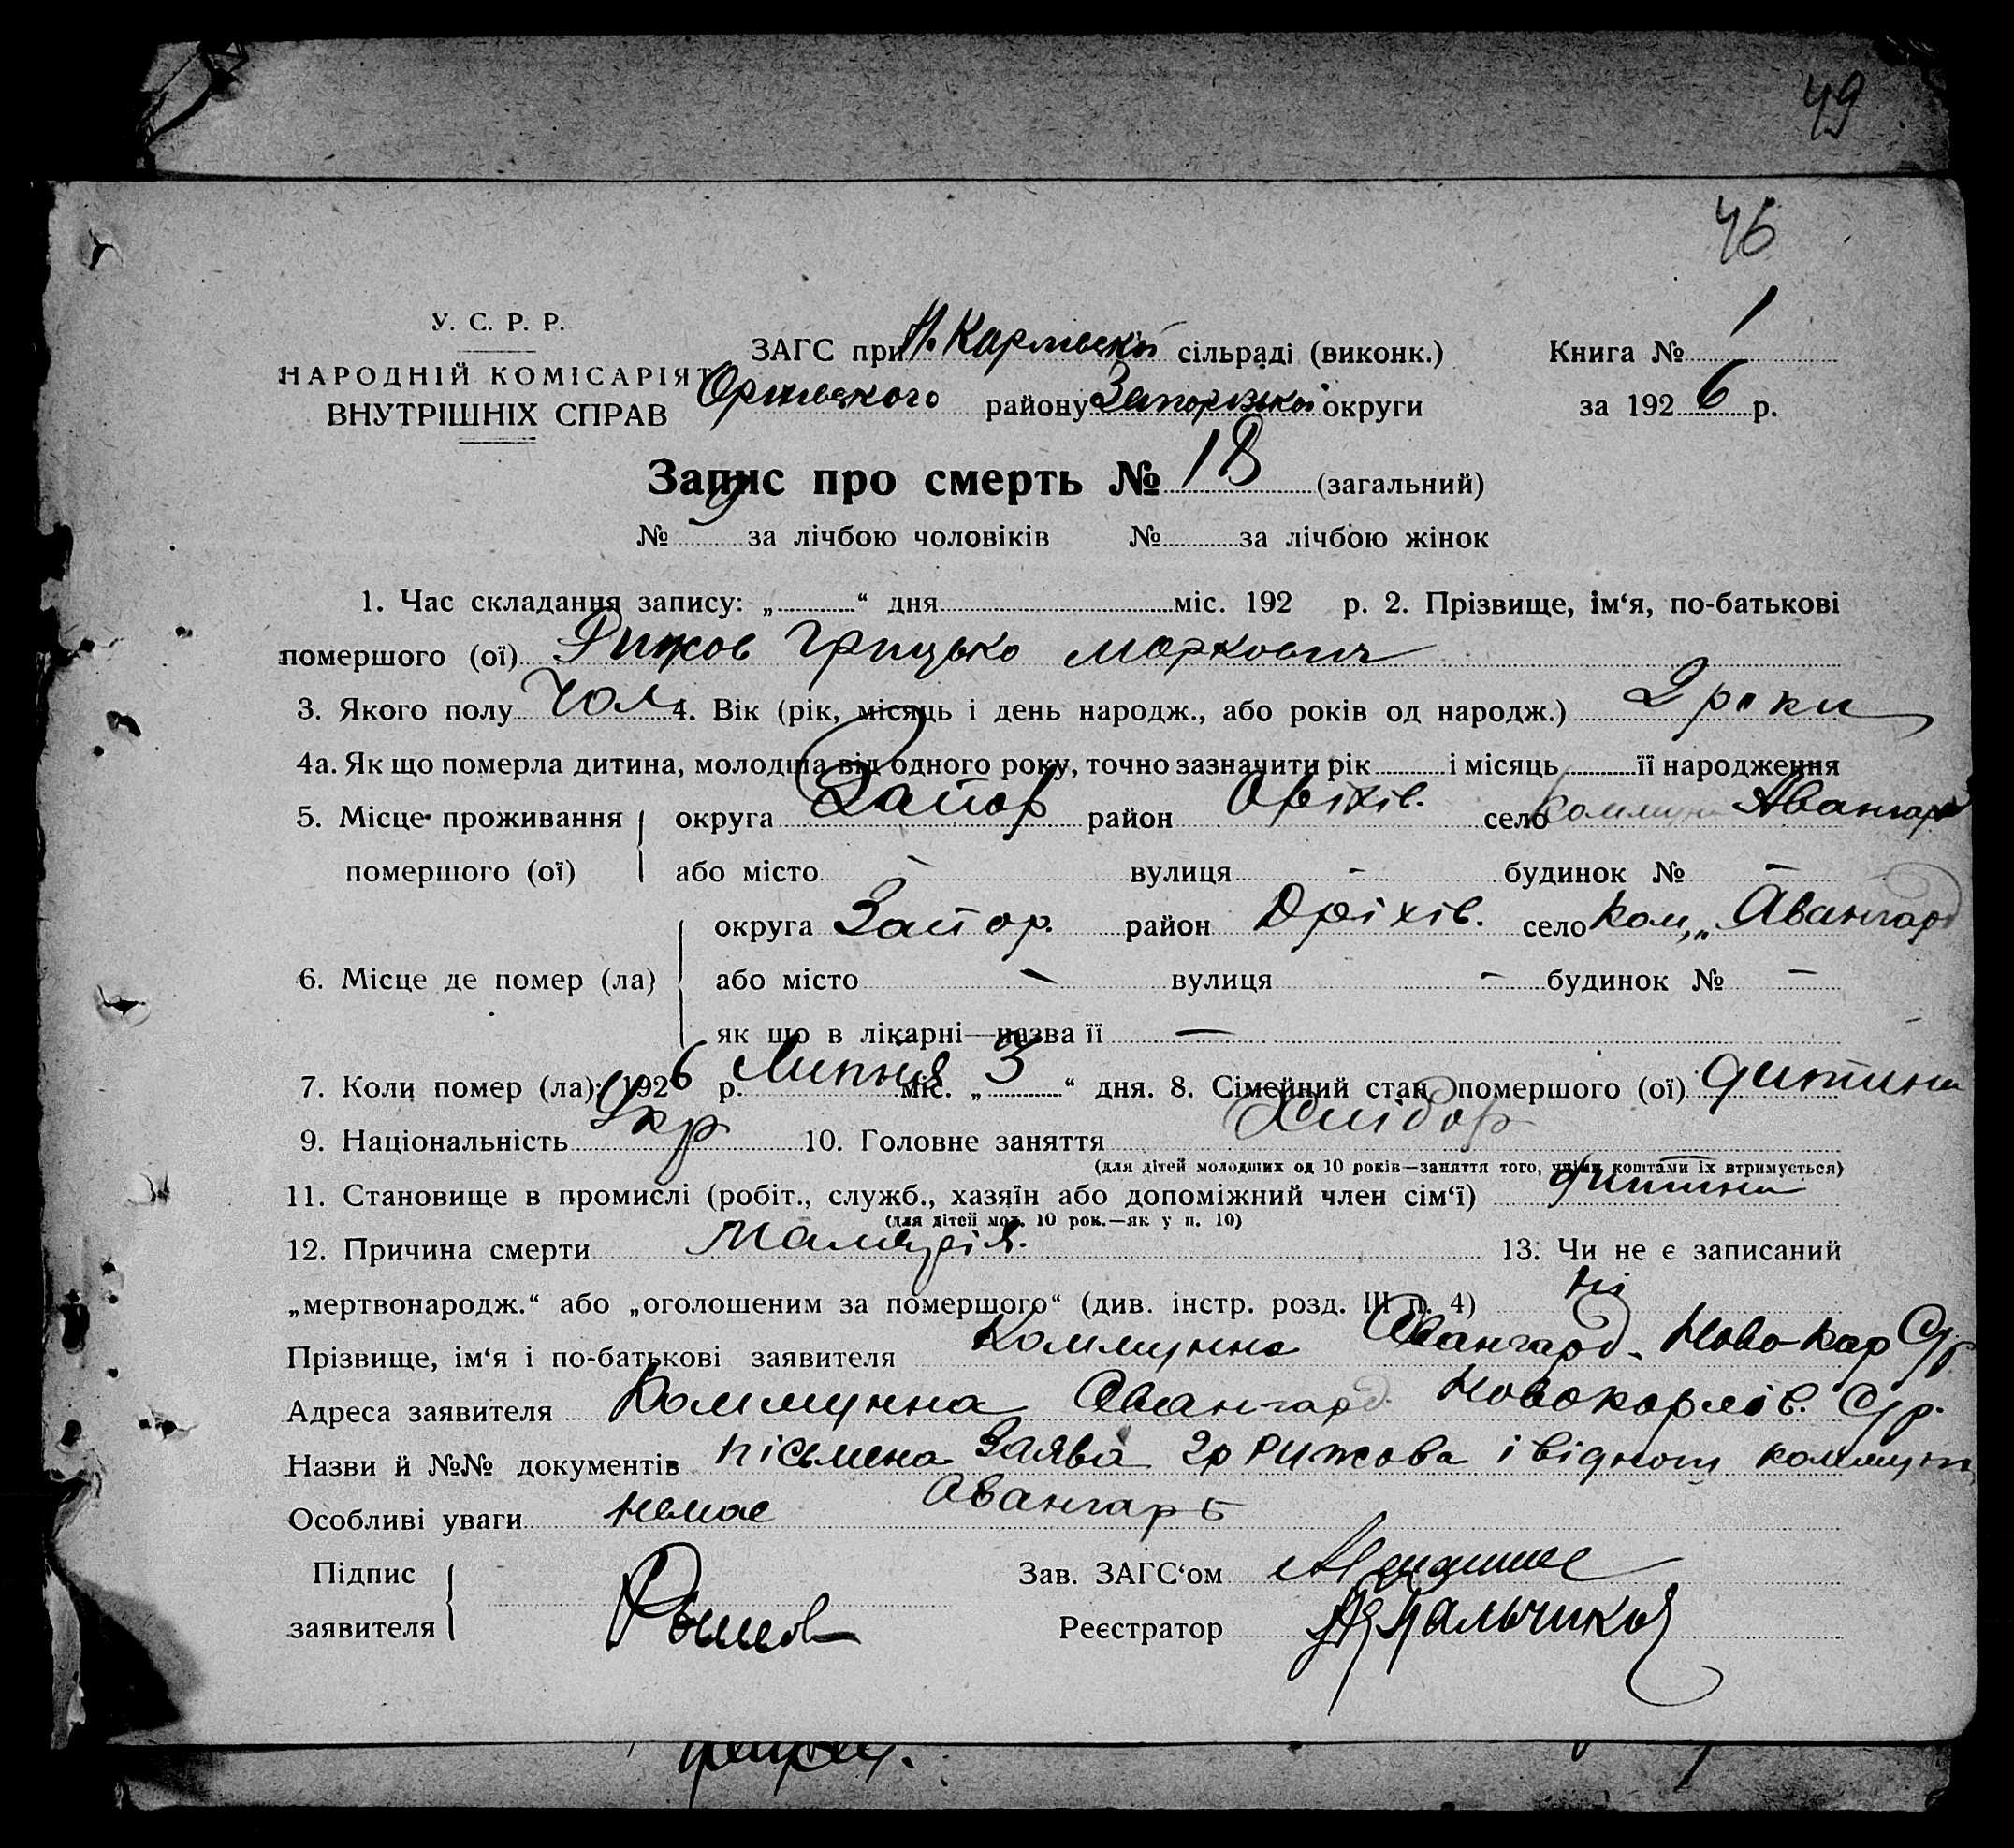 49
46
У. С. Р. Р.
НАРОДНІЙ КОМІСАРІЯТ
ВНУТРІШНІХ СПРАВ
ЗАГС при Н. Карлівські сільраді (виконк.) Книга № 1
Оріхівского району Запорізької округи за 1926 р.
Запис про смерть № 18 (загальний)
№ 9 за лічбою чоловіків № за лічбою жінок
1. Час складання запису: „ “ дня міс. 192 р. 2. Прізвище, ім‘я, по-батькові
помершого (ої) Рижов Грицько Маркович
3. Якого полу Чол 4. Вік (рік, місяць і день народж., або років од народж.) 2 роки
4а. Як що померла дитина, молодша від одного року, точно зазначити рік і місяць її народження
5. Місце проживання округа Запор район Оріхів. село Коммуна Авангард
помершого (ої) або місто - вулиця - будинок № -
округа Запор. район Оріхів. село Ком, „Авангард
6. Місце де помер (ла) або місто - вулиця - будинок № -
як що в лікарні—назва її —
7. Коли помер (ла): 1926 р. Липня міс. „3“ дня. 8. Сімейний стан помершого (ої) дитина
9. Національність Укр 10. Головне заняття Хлібор
(для дітей молодших од 10 років—заняття того, чиїми коштами їх втримується)
11. Становище в промислі (робіт., служб., хазяїн або допоміжний член сім‘ї) дитина
(для дітей мол. 10 рок.—як у п. 10)
12. Причина смерти Малярія. 13. Чи не є записаний
„мертвонародж.“ або „оголошеним за помершого“ (див. інстр. розд. III п. 4) ні
Прізвище, ім‘я і по-батькові заявителя Коммунна Авангард. Ново-Кар С/р
Адреса заявителя Коммунна Авангард. Новокарлів. С/р.
Назви й №№ документів пісьмена Заява гр Рижова і відном коммун
Авангарь
Особливі уваги немає
Підпис Зав. ЗАГС‘ом
заявителя Рыжов Реєстратор